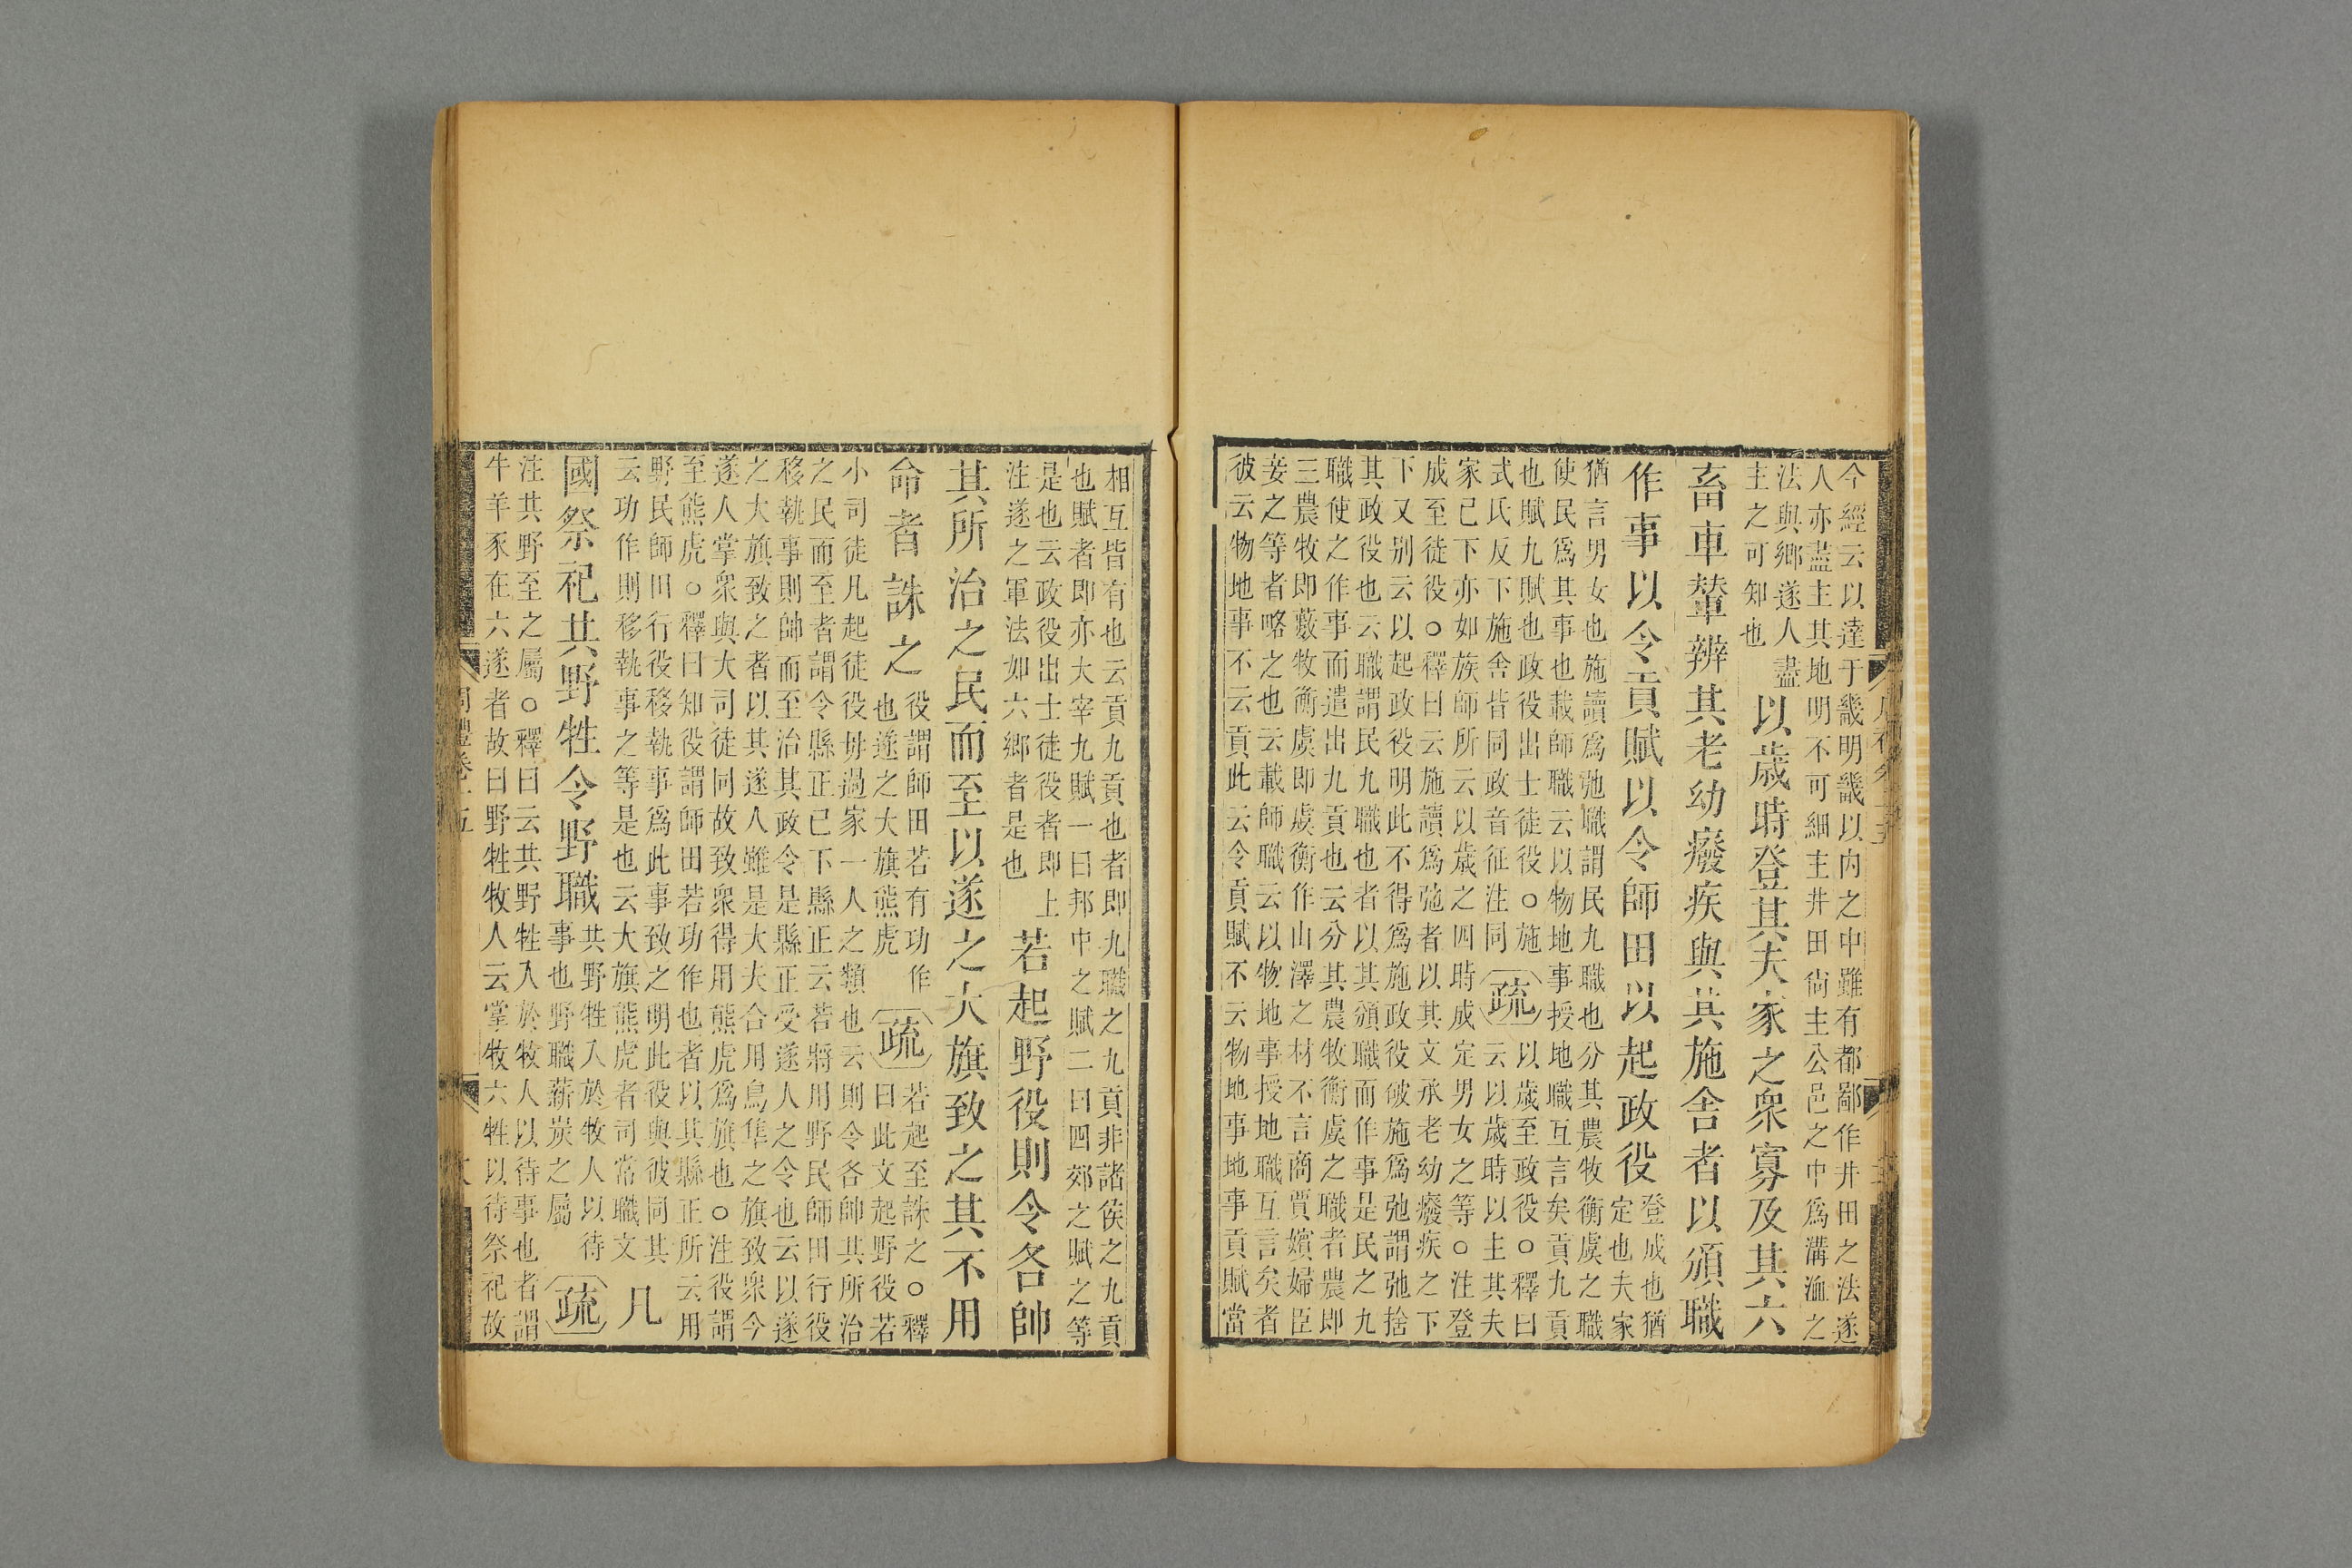 今經云以達于畿明畿以内之中雖有都鄙作井田之法遂
人亦盡主其地明不可細主井田尙主公邑之中爲溝洫之
法與鄉遂人盡
主之可知也
以歲時登其夫家之衆寡及其六
畜車輦辨其老幼癈疾與其施舍者以頒職
作事以令貢賦以令師田以起政役
登成也猶
定也夫家
猶言男女也施讀爲弛職謂民九職也分其農牧衡虞之職
使民爲其事也載師職云以物地事授地職互言矣貢九貢
也賦九賦也政役出士徒役○施
式氏反下施舍皆同政音征注同
疏
以歲至政役○釋曰
云以歲時以主其夫
家已下亦如族師所云以歲之四時成定男女之等○注登
成至徒役○釋曰云施讀爲弛者以其文承老幼癈疾之下
下又别云以起政役明此不得爲施政役破施爲弛謂弛捨
其政役也云職謂民九職也者以其頒職而作事是民之九
職使之作事而遣出九貢也云分其農牧衡虞之職者農即
三農牧即藪牧衡虞即虞衡作山澤之材不言商賈嬪婦臣
妾之等者略之也云載師職云以物地事授地職互言矣者
彼云物地事不云貢此云令貢賦不云物地事地事貢賦當
相互皆有也云貢九貢也者即九職之九貢非諸侯之九貢
也賦者即亦大宰九賦一曰邦中之賦二曰四郊之賦之等
是也云政役出士徒役者即上
注遂之軍法如六鄉者是也
若起野役則令各帥
其所治之民而至以遂之大旗致之其不用
命者誅之
役謂師田若有功作
也遂之大旗熊虎
疏
若起至誅之○釋
曰此文起野役若
小司徒凡起徒役毋過家一人之類也云則令各帥其所治
之民而至者謂令縣正已下縣正云若將用野民師田行役
移執事則帥而至治其政令是縣正受遂人之令也云以遂
之大旗致之者以其遂人雖是大夫合用鳥隼之旗致衆今
遂人掌衆與大司徒同故致衆得用熊虎爲旗也○注役謂
至熊虎○釋曰知役謂師田若功作也者以其縣正所云用
野民師田行役移執事爲此事致之明此役與彼同其
云功作則移執事之等是也云大旗熊虎者司常職文
凡
國祭祀共野牲令野職
共野牲入於牧人以待
事也野職薪炭之屬
疏
注共野至之屬○釋曰云共野牲入於牧人以待事也者謂
牛羊豕在六遂者故曰野牲牧人云掌牧六牲以待祭祀故